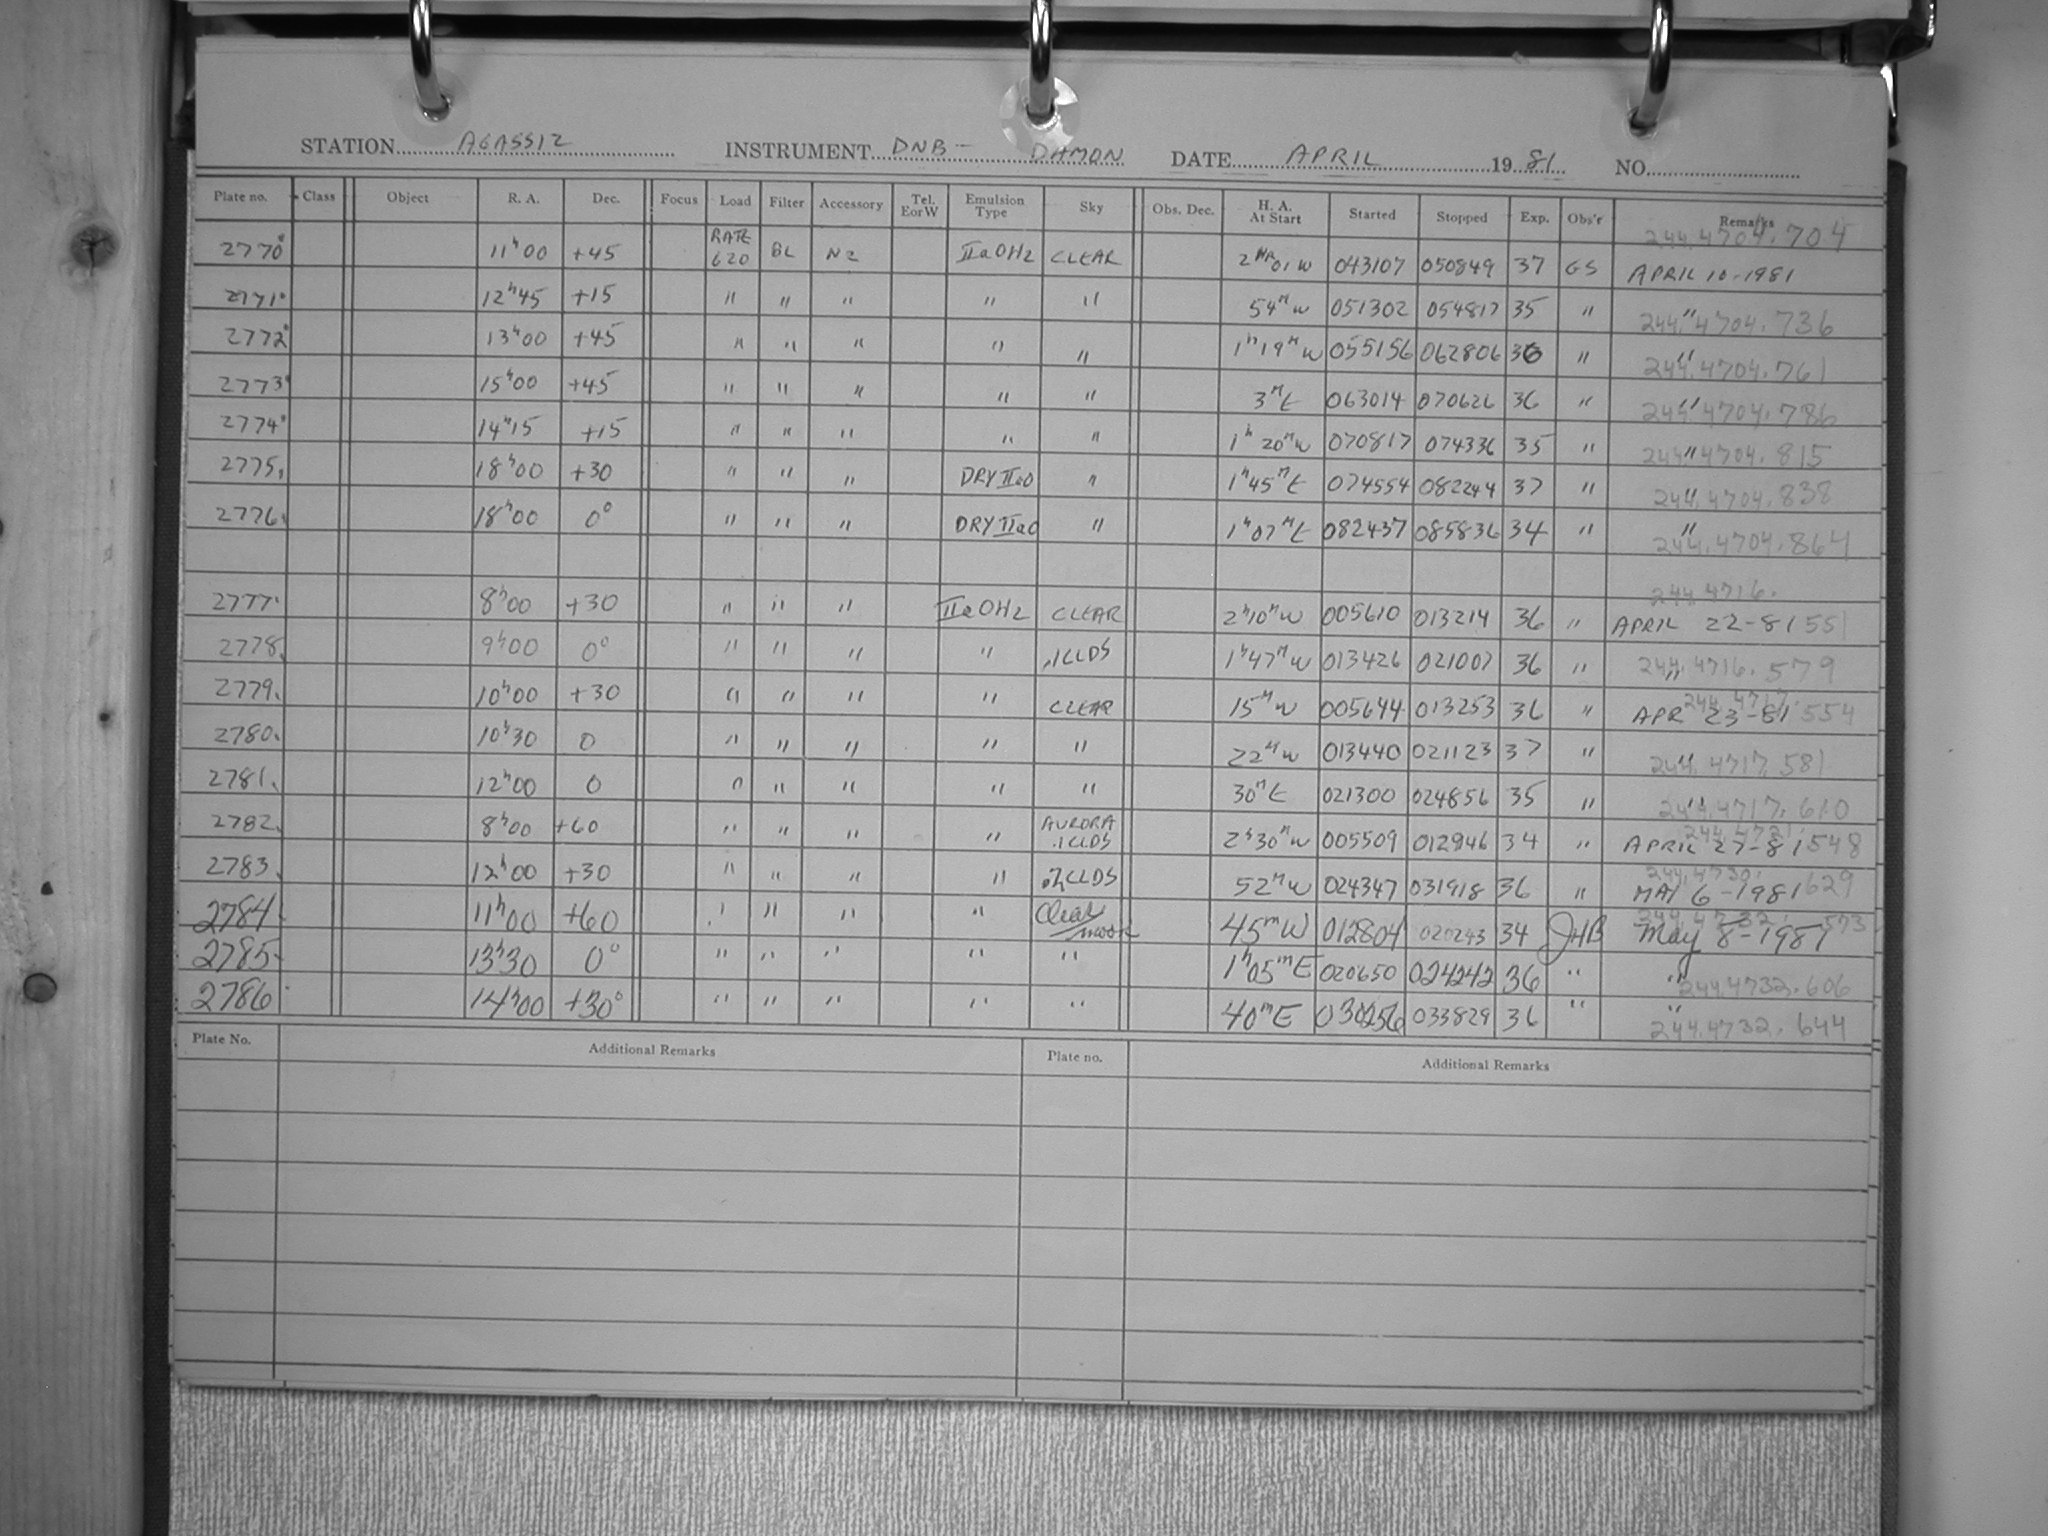 STATION AGASSIZ INSTRUMENT DNB - DAMON DATE APRIL 1981 NO.
Plate no. Class Object R. A. Dec. Focus Load Filter Accessory Tel. E or W Emulsion Type Sky Obs. Dec. H. A. At Start Started Stopped Exp. Obs'r Remarks
244.4704.704
2770 11h00 +45 RATE 620 BL N2 IIaOH2 CLEAR 2HR01 W 043107 050849 37 GS APRIL 10-1981
2771 12h45 +15 " " " " " 54M W 051302 054817 35 " " 244.4704.736
2772 13h00 +45 " " " " " 1h19M W 055156 062806 36 " " 244.4704.761
2773 15h00 +45 " " " " " 3M E 063014 070626 36 " " 244.4704.786
2774 14h15 +15 " " " " " 1h20M W 070817 074336 35 " " 244.4704.815
2775 18h00 +30 " " " DRY IIaO " 1h45M E 074554 082244 37 " " 244.4704.838
2776 18h00 0° " " " DRY IIaO " 1h07M E 082437 085836 34 " " 244.4704.864
2777 8h00 +30 " " " IIaOH2 CLEAR 2h10M W 005610 013214 36 " APRIL 22-81 244.4716.551
2778 9h00 0° " " " " .1CLDS 1h47M W 013426 021007 36 " " 244.4716.579
2779 10h00 +30 " " " " CLEAR 15M W 005644 013253 36 " APR 23-81 244.4717.554
2780 10h30 0 " " " " " 22M W 013440 021123 37 " " 244.4717.581
2781 12h00 0 " " " " " 30M E 021300 024856 35 " " 244.4717.610
2782 8h00 +60 " " " " AURORA .1CLDS 2h30M W 005509 012946 34 " APRIL 27-81 244.4721.548
2783 12h00 +30 " " " " CLDS 52M W 024347 031918 36 " MAY 6-1981 244.4730.629
2784 11h00 +60 " " " " Clear moon 45m W 012804 020243 34 JHB May 8-1981 244.4732.573
2785 13h30 0° " " " " " 1h05m E 020650 024242 36 " " 244.4732.606
2786 14h00 +30° " " " " " 40m E 030256 033829 36 " " 244.4732.644
Plate No. Additional Remarks Plate no. Additional Remarks